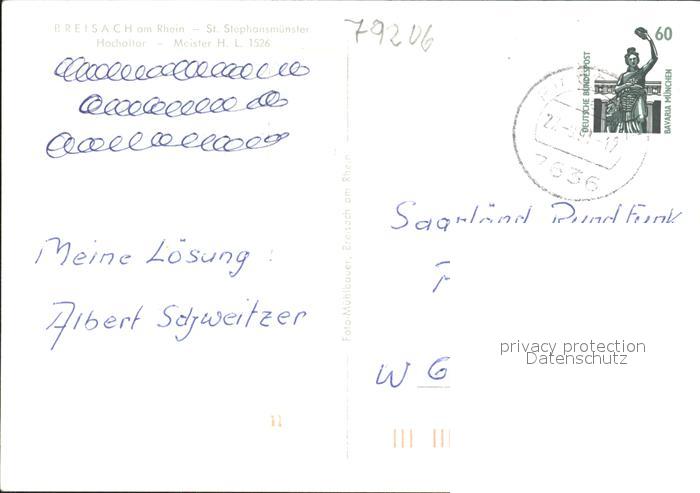 BREISACH am Rhein — St. Stephansmünster
Hochaltar - Meister H. L. 1526
79206
Meine Lösung :
Albert Schweitzer
Foto-Mühlbauer, Breisach am Rhein
60
DEUTSCHE BUNDESPOST
BAVARIA MÜNCHEN
7636
Saarländ Rundfunk
W 6
privacy protection
Datenschutz